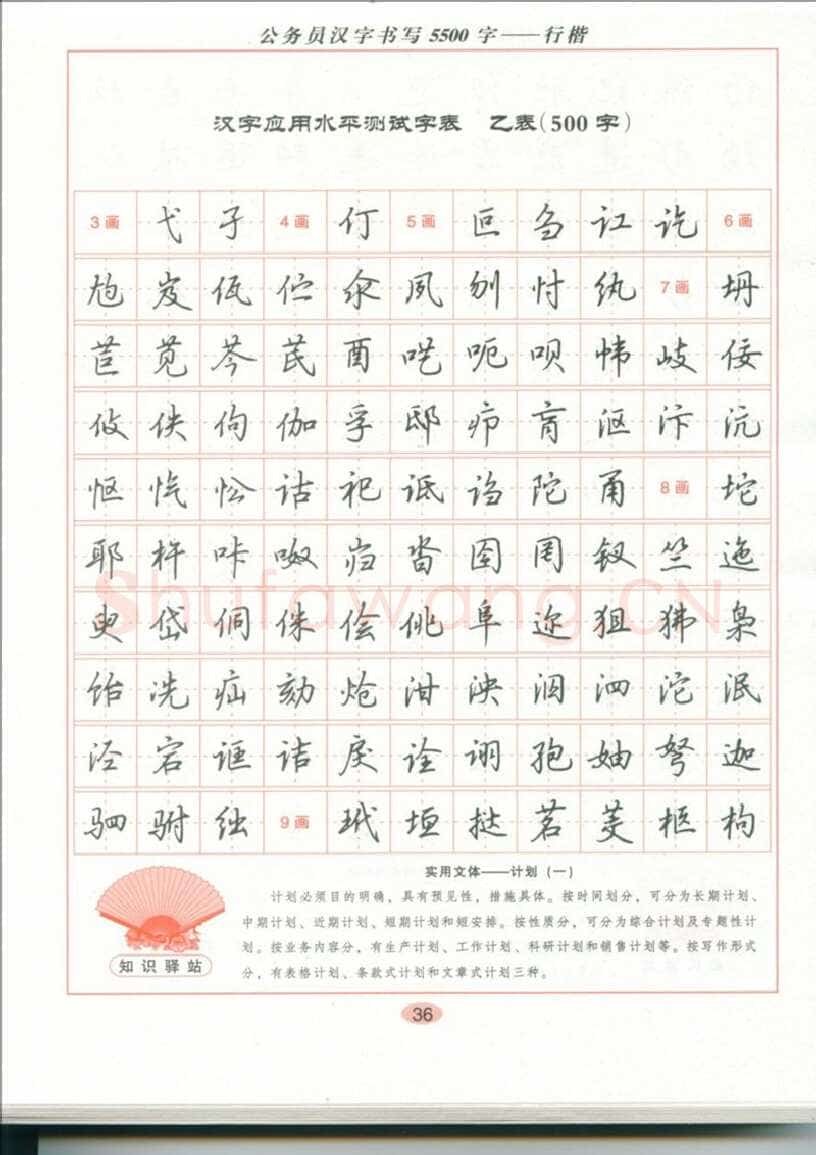 公务员汉字书写5500字——行楷
汉字应用水平测试字表 乙表(500字)
3画 弋 孑 4画 仃 5画 叵 刍 讧 讫 6画
尥 岌 佤 伫 汆 夙 刎 忖 纨 7画 坍
苣 苋 芩 芪 酉 呓 呃 呗 帏 岐 佞
攸 佚 佝 伽 孚 邸 疖 肓 沤 汴 沅
怄 忾 忪 诂 祀 诋 诌 陀 甬 8画 坨
耶 杵 咔 呶 岿 沓 囹 罔 钗 竺 迤
臾 岱 侗 侏 侩 佻 阜 迩 狙 狒 枭
饴 冼 疝 劾 炝 泔 泱 泅 泗 沱 泯
泾 宕 诓 诘 戾 诠 诩 孢 妯 弩 迦
驷 驸 绌 9画 玳 垣 挞 茗 荚 柩 枸
实用文体——计划(一)
计划必须目的明确，具有预见性，措施具体。按时间划分，可分为长期计划、
中期计划、近期计划、短期计划和短安排。按性质分，可分为综合计划及专题性计
划。按业务内容分，有生产计划、工作计划、科研计划和销售计划等。按写作形式
分，有表格计划、条款式计划和文章式计划三种。
知识驿站
36
Shufawang.CN